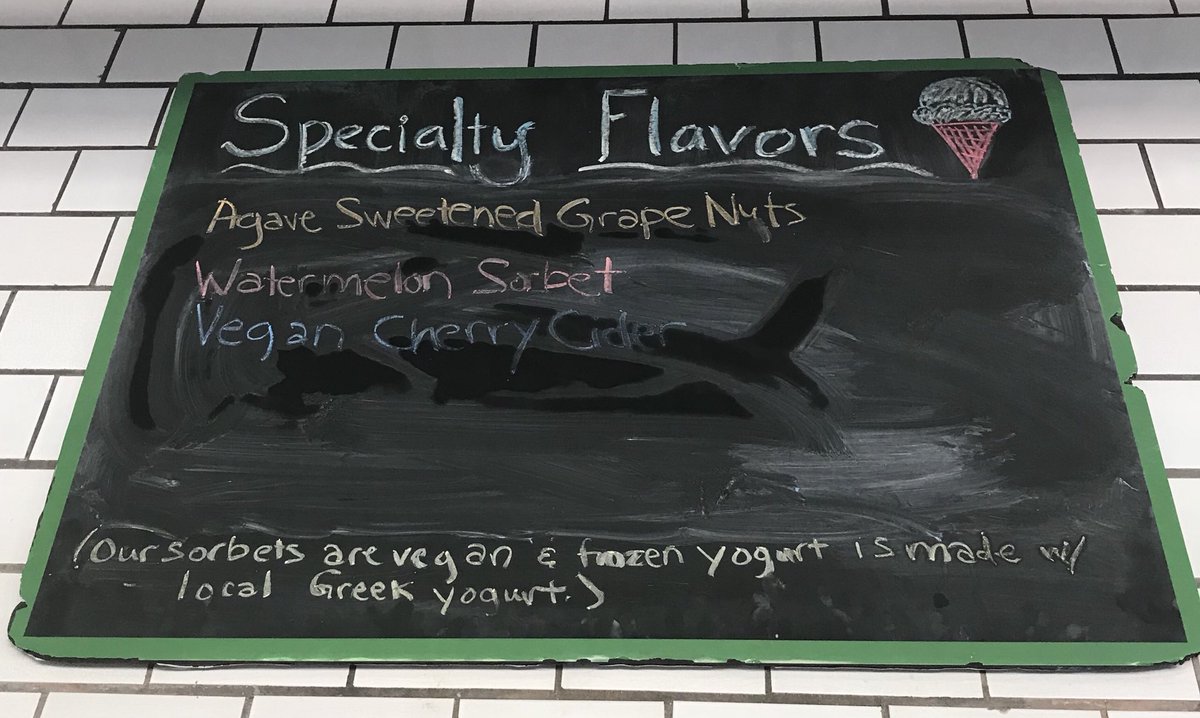 Specialty Flavors
Agave Sweetened Grape Nuts
Watermelon Sorbet
Vegan Cherry Cider
(Our sorbets are vegan & frozen yogurt is made w/
local Greek yogurt.)